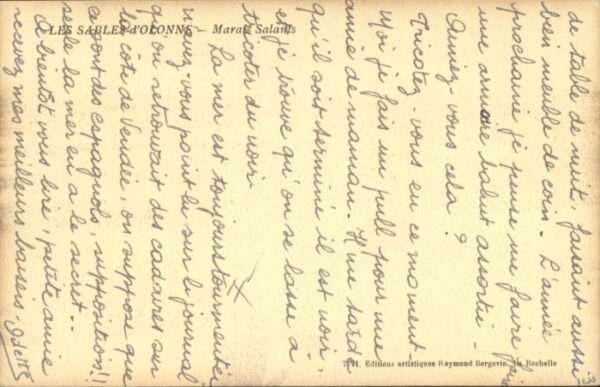 LES SABLES d'OLONNE — Marais Salants
de table de nuit, faisant aussi
bien meuble de coin. L'année
prochaine je pense me faire
une armoire bahut assortie -
Aimez-vous cela ?
Tricotez-vous en ce moment
Moi je fais un pull pour une
amie de maman. Il me tarde
qu'il soit terminé il est noir
et je trouve qu'on se lasse à
tricoter du noir
La mer est toujours tourmentée
n'avez-vous point lu sur le journal
qu'on retrouvait des cadavres sur
la côte de Vendée, on suppose que
ce sont des espagnols, suppositions!!
seule la mer en a le secret -
A bientôt vous lire, petite amie
recevez mes meilleurs baisers - Odette
Editions artistiques Raymond Bergevin, La Rochelle